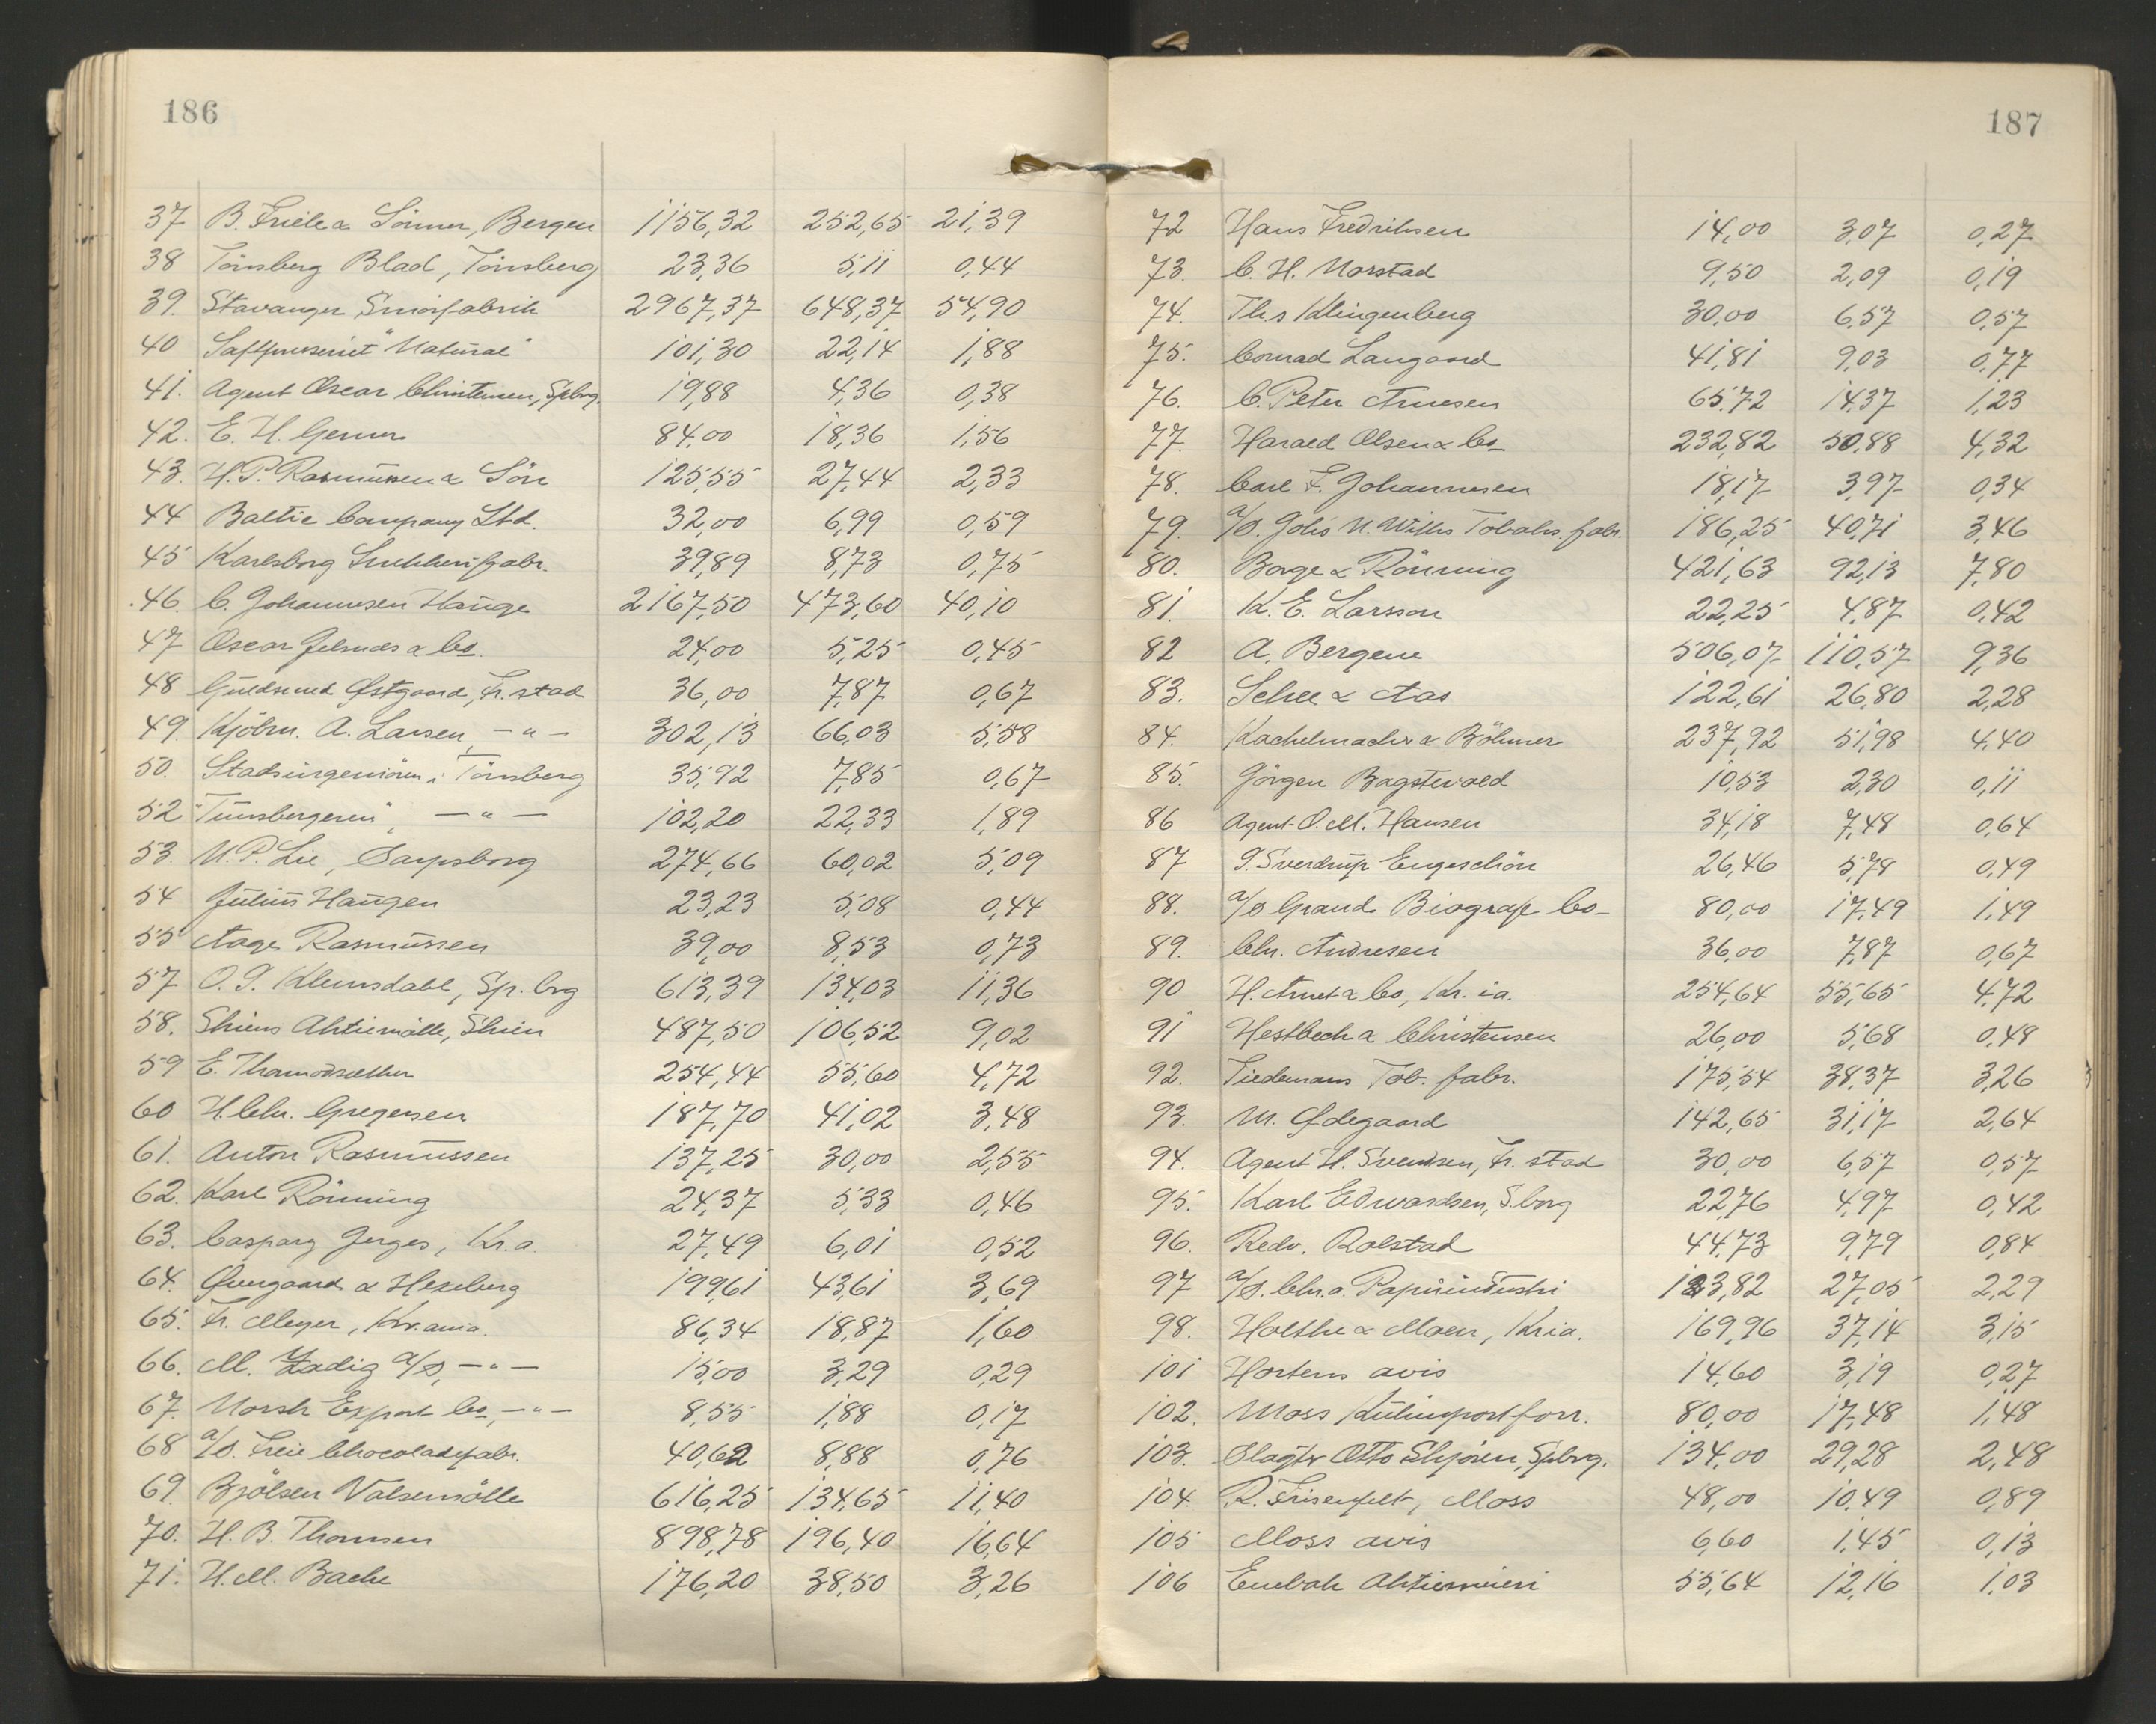 186
37 B. Friele & Sönner, Bergen 1156,32 252,65 21,39
38 Tönsberg Blad, Tönsberg 23,36 5,11 0,44
39. Stavanger Smörfabrik 2967,37 648,37 54,90
40 Saftpresseriet "Natural" 101,30 22,14 1,88
41. Agent Oscar Christensen, Spbrg. 19,88 4,36 0,38
42. E. H. 84,00 18,36 1,56
43. H. P. Rasmussen & Sön 125,55 27,44 2,33
44 Baltic Company Ltd. 32,00 6,99 0,59
45 Karlsborg Snekkerifabr. 39,89 8,73 0,75
46. C. Johannesen Hauge 2167,50 473,60 40,10
47 Oscar & Co. 24,00 5,25 0,45
48 Guldsmed Østgaard, Fr.stad 36,00 7,87 0,67
49. Kjöbm. A. Larsen, — " — 302,13 66,03 5,58
50. Stadsingeniören i Tönsberg 35,92 7,85 0,67
52 "Tunsbergeren", — " — 102,20 22,33 1,89
53. N. P. Lie, Sarpsborg 274,66 60,02 5,09
54 Julius Haugen 23,23 5,08 0,44
55 Aage Rasmussen 39,00 8,53 0,73
57 O. J. Klemsdahl, Sp.brg 613,39 134,03 11,36
58. Skiens Aktiemölle, Skien 487,50 106,52 9,02
59 E. Thomodsæther 254,44 55,60 4,72
60 H. Chr. Gregersen 187,70 41,02 3,48
61. Anton Rasmussen 137,25 30,00 2,55
62. Karl Rönning 24,37 5,33 0,46
63. Caspary Jerges, Kr.a. 27,49 6,01 0,52
64. Øvergaard & Hexeberg 199,61 43,61 3,69
65. Fr. Meyer, Kr.ania. 86,34 18,87 1,60
66. M. Zadig A/S, — " — 15,00 3,29 0,29
67. Norsk Export Co, — " — 8,55 1,88 0,17
68 A/S. Freia Chocoladefabr. 40,62 8,88 0,76
69. Bjölsen Valsemölle 616,25 134,65 11,40
70. H. B. Thomsen 898,78 196,40 16,64
71. H. M. Bache 176,20 38,50 3,26
187
72 Hans Fredriksen 14,00 3,07 0,27
73. C. H. Norstad 9,50 2,09 0,19
74. Ths Klingenberg 30,00 6,57 0,57
75. Conrad Langaard 41,81 9,03 0,77
76. C. Peter Arnesen 65,72 14,37 1,23
77. Harald Olsen & Co 232,82 50,88 4,32
78. Carl F. Johannesen 18,17 3,97 0,34
79. A/S. Johs N. Wilhs Tobaks.fabr. 186,25 40,71 3,46
80. Borge & Rönning 421,63 92,13 7,80
81. K. E. Larsson 22,25 4,87 0,42
82 A. Bergene 506,07 110,57 9,36
83. Schee & Aas 122,61 26,80 2,28
84. Kachelmacher & Böhmer 237,92 51,98 4,40
85. Jörgen Bagstevold 10,53 2,30 0,11
86 Agent O. M. Hansen 34,18 7,48 0,64
87 J. Sverdrup Engeschön 26,46 5,78 0,49
88. A/S Grand Biograf Co 80,00 17,49 1,49
89. Chr. Andresen 36,00 7,87 0,67
90 H. & Co, Kr.ia. 254,64 55,65 4,72
91 Hestbech & Christensen 26,00 5,68 0,48
92. Tiedemans Tob. fabr. 175,54 38,37 3,26
93. M. Ødegaard 142,65 31,17 2,64
94. Agent H. Svendsen, Fr.stad 30,00 6,57 0,57
95. Karl Edvardsen, S.borg 22,76 4,97 0,42
96. Redv. Rolstad 44,73 9,79 0,84
97 A/S. Chr.a. Papirindustri 123,82 27,05 2,29
98. Holthe & Moen, Kria. 169,96 37,14 3,15
101 Hortens avis 14,60 3,19 0,27
102. Moss Kulimportforr. 80,00 17,48 1,48
103. Slagter Otto Skjören, Spbrg. 134,00 29,28 2,48
104. R. Frisenfelt, Moss 48,00 10,49 0,89
105 Moss avis 6,60 1,45 0,13
106 Enebak Aktiemeieri 55,64 12,16 1,03